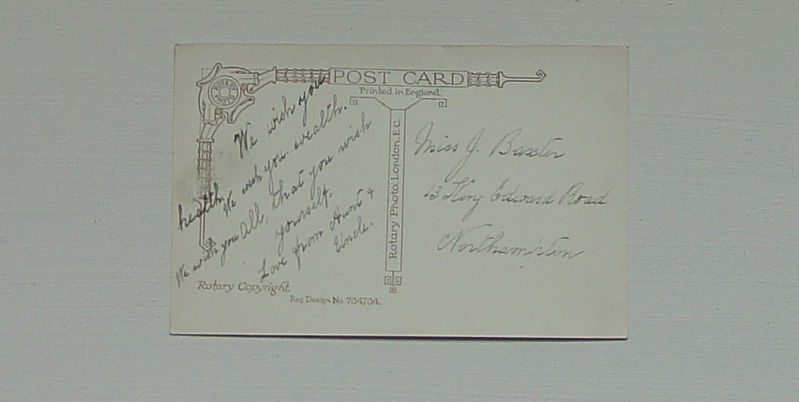 POST CARD
Printed in England.
We wish you
health,
We wish you wealth.
We wish you all, that you wish
yourself.
Love from Aunt &
Uncle.
Rotary Photo, London, E.C.
Miss J. Baxter
13 King Edward Road
Northampton
Rotary Copyright.
Reg Design No. 734734.